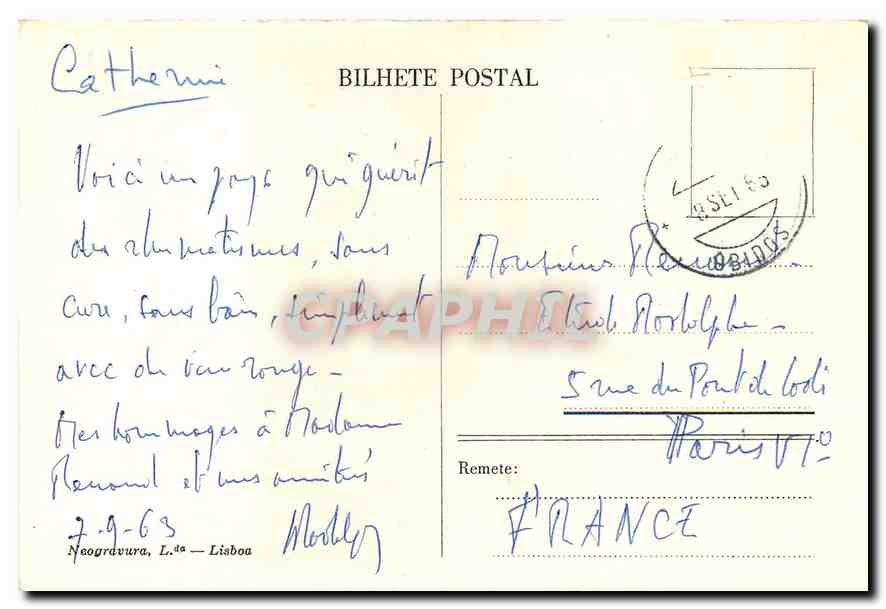 Catherine
BILHETE POSTAL
Voici un pays qui guérit
des rhumatismes, sans
cure, sans bain, simplement
avec du vin rouge –
Mes hommages à Madame
Renand et mes amitiés
7-9-63
Neogravura, L.da — Lisboa
8 SET 63
OBIDOS
Monsieur
Etude Rodolphe –
5 rue du Pont de Lodi
Paris VIo
Remete:
FRANCE
CPAPHIL